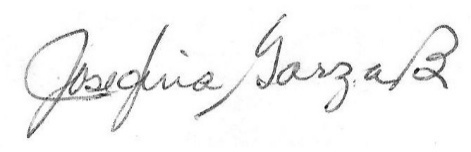 Josefina Garza B